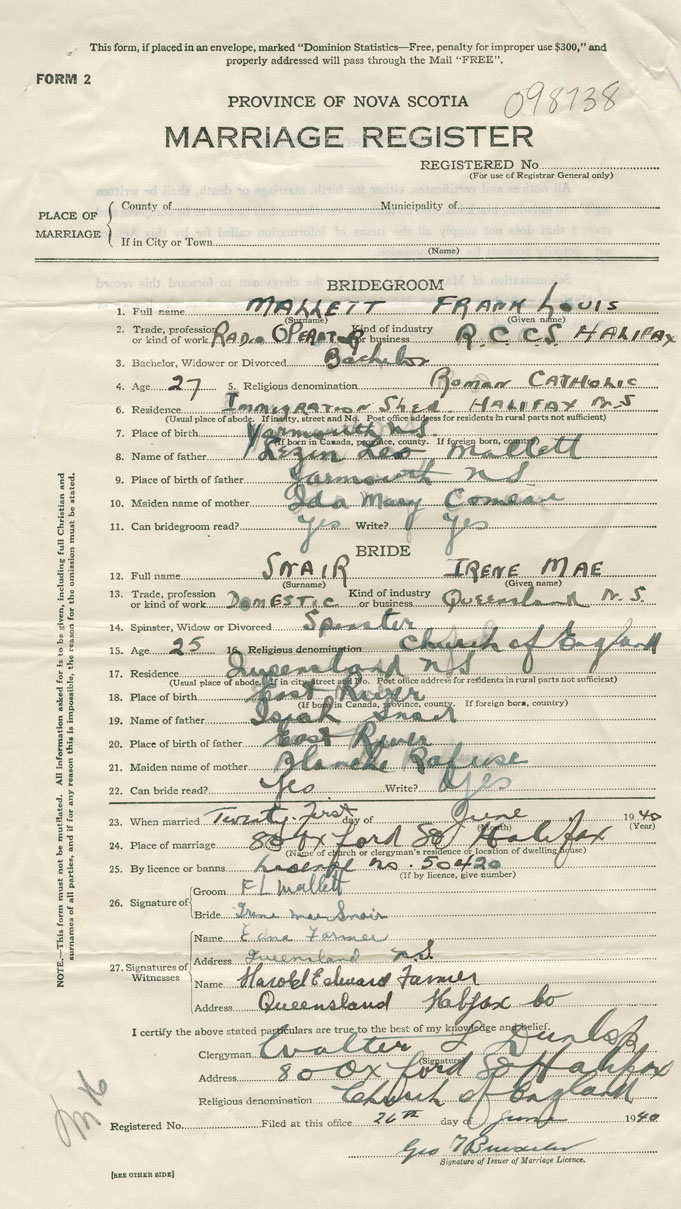 This form, if placed in an envelope, marked "Dominion Statistics—Free, penalty for improper use $300," and
properly addressed will pass through the Mail "FREE".
FORM 2
098738
PROVINCE OF NOVA SCOTIA
MARRIAGE REGISTER
REGISTERED No.
(For use of Registrar General only)
PLACE OF MARRIAGE
County of Municipality of
If in City or Town
(Name)
BRIDEGROOM
1. Full name MALLETT FRANK LOUIS
(Surname) (Given name)
2. Trade, profession or kind of work RADIO OPERATOR Kind of industry or business R.C.C.S. HALIFAX
3. Bachelor, Widower or Divorced Bachelor
4. Age 27 5. Religious denomination ROMAN CATHOLIC
6. Residence IMMIGRATION SHED. HALIFAX N-S
(Usual place of abode. If in city, street and No. Post office address for residents in rural parts not sufficient)
7. Place of birth Yarmouth NS
(If born in Canada, province, county. If foreign born, country)
8. Name of father Lezin Leo Mallett
9. Place of birth of father Yarmouth NS
10. Maiden name of mother Ida Mary Comeau
11. Can bridegroom read? Yes Write? Yes
BRIDE
12. Full name SNAIR IRENE MAE
(Surname) (Given name)
13. Trade, profession or kind of work DOMESTIC Kind of industry or business Queensland N.S.
14. Spinster, Widow or Divorced Spinster
15. Age 25 16. Religious denomination Church of England
17. Residence Queensland NS
(Usual place of abode. If in city, street and No. Post office address for residents in rural parts not sufficient)
18. Place of birth East River
(If born in Canada, province, county. If foreign born, country)
19. Name of father Isiah Snair
20. Place of birth of father East River
21. Maiden name of mother Blanche Rafuse
22. Can bride read? Yes Write? Yes
23. When married Twenty-First day of June 1940
(Month) (Year)
24. Place of marriage 80 Oxford St Halifax
(Name of church or clergyman's residence or location of dwelling house)
25. By licence or banns License no. 50420
(If by licence, give number)
26. Signature of
Groom F L Mallett
Bride Irene Mae Snair
27. Signatures of Witnesses
Name Edna Farmer
Address Queensland N.S.
Name Harold Edward Farmer
Address Queensland Halifax Co
I certify the above stated particulars are true to the best of my knowledge and belief.
Clergyman Walter F Dunlop
(Signature)
Address 80 Oxford St Halifax
Religious denomination Church of England
Registered No. Filed at this office 26th day of June 1940
Geo
Signature of Issuer of Marriage Licence.
[SEE OTHER SIDE]
NOTE.—This form must not be mutilated. All information asked for is to be given, including full Christian and
surnames of all parties, and if for any reason this is impossible, the reason for the omission must be stated.